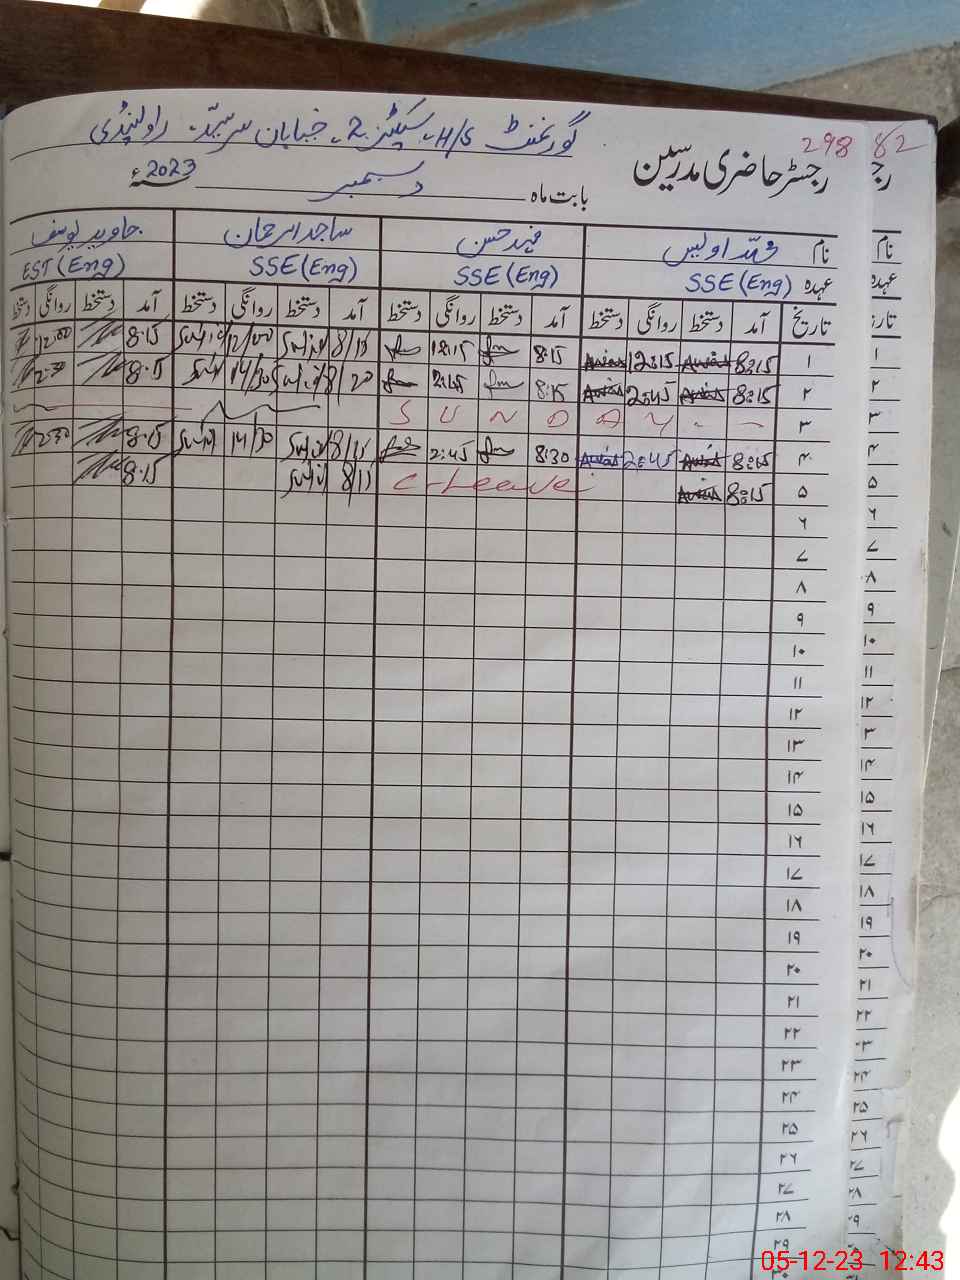 298 82
گورنمنٹ H/S سیکٹر 2۔ خیابان سرسید۔ راولپنڈی
رجسٹر حاضری مدرسین
بابت ماہ دسمبر 2023ء
نام محمد اویس فہد حسن ساجد الرحمان جاوید یوسف
عہدہ SSE (Eng) SSE (Eng) SSE (Eng) EST (Eng)
تاریخ آمد دستخط روانگی دستخط آمد دستخط روانگی دستخط آمد دستخط روانگی دستخط آمد دستخط روانگی دستخط
۱ 8:15 Awais 12:15 Awais 8:15 12:15 8/15 12/00 8:15 12:00
۲ 8:15 Awais 2:45 Awais 8:15 2:45 8/20 14/30 8:15 2:30
۳ S U N D A Y
۴ 8:15 Awais 2:45 Awais 8:30 2:45 8/15 14/30 8:15 2:30
۵ 8:15 Awais C-Leave 8/15 8:15
۶
۷
۸
۹
۱۰
۱۱
۱۲
۱۳
۱۴
۱۵
۱۶
۱۷
۱۸
۱۹
۲۰
۲۱
۲۲
۲۳
۲۴
۲۵
۲۶
۲۷
۲۸
۲۹
۳۰
05-12-23 12:43